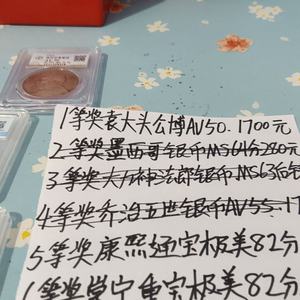 1等奖袁大头公博AV50.1700元
2等奖墨西哥银币MS64分280元
3等奖大 银币MS63
4等奖乔治五世银币AV55.17
5等奖康熙通宝极美82分
等奖崇宁重宝极美82分